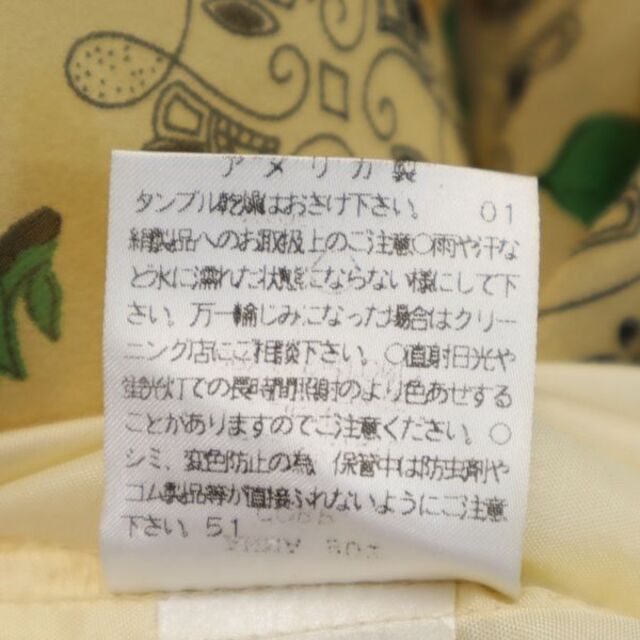 アメリカ製
タンブル乾燥はおさけ下さい。 01
絹製品へのお取扱上のご注意○雨や汗な
ど水に濡れた状態にならない様にして下
さい。万一輪じみになった場合はクリー
ニング店にご相談下さい。○直射日光や
蛍光灯での長時間照射のより色あせする
ことがありますのでご注意ください。○
シミ、変色防止の為、保管中は防虫剤や
ゴム製品等が直接ふれないようにご注意
下さい。51